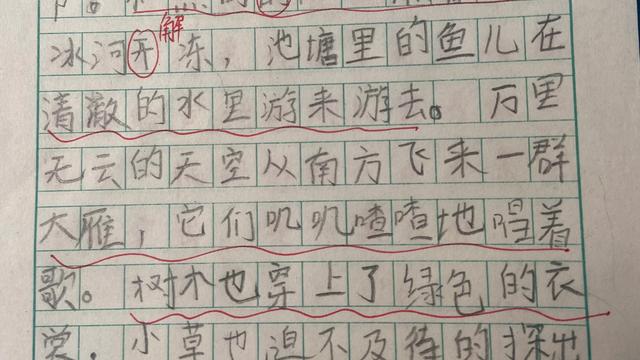 解
冰河开冻，池塘里的鱼儿在
清澈的水里游来游去。万里
无云的天空从南方飞来一群
大雁，它们叽叽喳喳地唱着
歌。树木也穿上了绿色的衣
裳，小草也迫不及待的探出